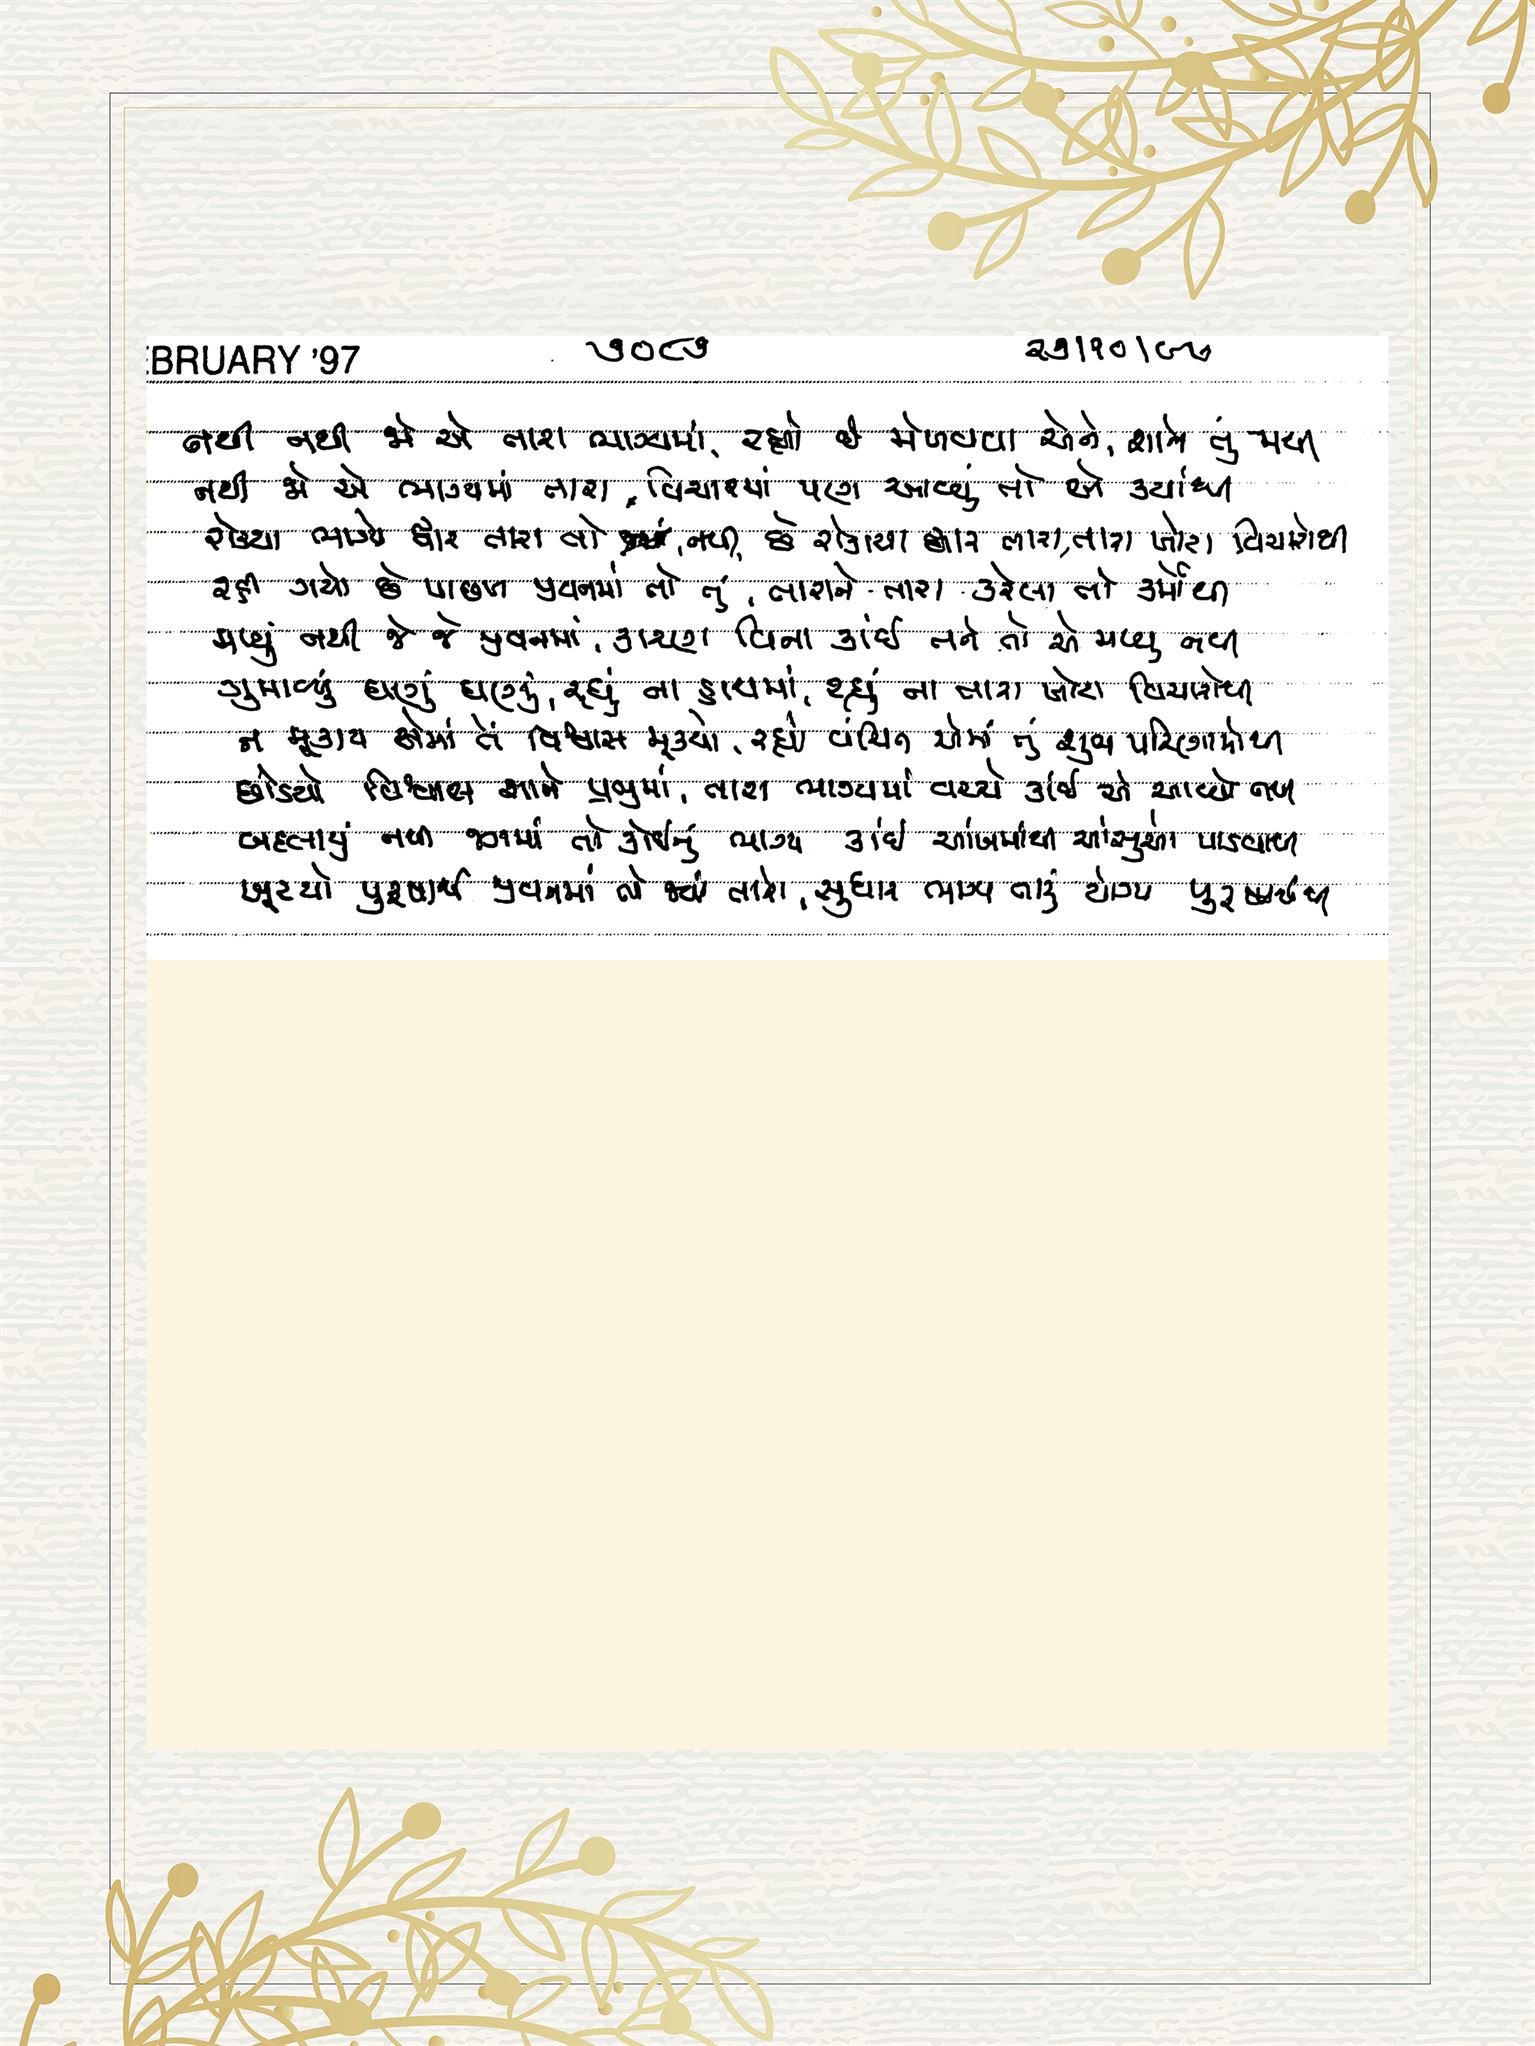 EBRUARY '97 ૭૦૮૭ ૨૭/૧૦/૯૭
નથી નથી જો એ તારા ભાગ્યમાં, રહ્યો છે મેળવવા એને, શાને તું મથી
નથી જો એ ભાગ્યમાં તારા, વિચારમાં પણ આવ્યું તો એ ક્યાંથી
રોક્યા ભાગ્યે દ્વાર તારા તો નથી, છે રોકાયા દ્વાર તારા, તારા ખોટા વિચારોથી
રહી ગયો છે પાછળ જીવનમાં તો તું, તારાને તારા કરેલા તો કર્મોથી
મળ્યું નથી જે જે જીવનમાં, કારણ વિના કાંઈ તને તો એ મળ્યુ નથી
ગુમાવ્યું ઘણું ઘણું, રહ્યું ના હાથમાં, રહ્યું ના તારા ખોટા વિચારોથી
ન મૂકાય એમાં તેં વિશ્વાસ મૂક્યો, રહ્યો વંચિત એમાં તું શુભ પરિણામોથી
છોડયો વિશ્વાસ શાને પ્રભુમાં, તારા ભાગ્યમાં વચ્ચે કાંઈ એ આવ્યો નથી
બદલાયું નથી જગમાં તો કોઈનું ભાગ્ય કાંઈ આંખમાંથી આંસુઓ પાડવાથી
ખૂટયો પુરૂષાર્થ જીવનમાં તો જ્યાં તારો, સુધાર ભાગ્ય તારું યોગ્ય પુરૂષાર્થથી